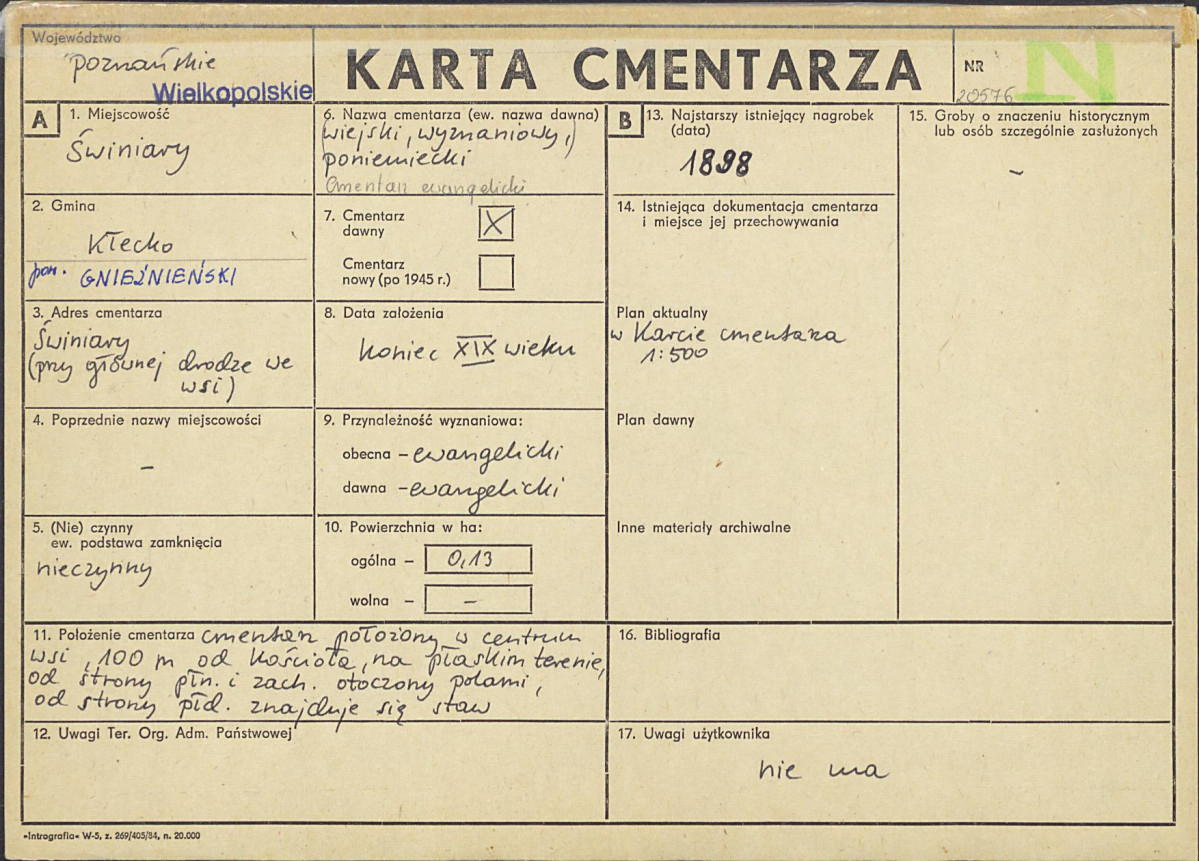 Województwo
poznańskie
Wielkopolskie
KARTA CMENTARZA
NR
20576
N
A
1. Miejscowość
Świniary
2. Gmina
Kłecko
pow. GNIEŹNIEŃSKI
3. Adres cmentarza
Świniary
(przy głównej drodze we
wsi)
4. Poprzednie nazwy miejscowości
–
5. (Nie) czynny
ew. podstawa zamknięcia
nieczynny
6. Nazwa cmentarza (ew. nazwa dawna)
(wiejski, wyznaniowy,)
poniemiecki
Cmentarz ewangelicki
7. Cmentarz
dawny
X
Cmentarz
nowy (po 1945 r.)
8. Data założenia
koniec XIX wieku
9. Przynależność wyznaniowa:
obecna – ewangelicki
dawna – ewangelicki
10. Powierzchnia w ha:
ogólna – 0,13
wolna – –
11. Położenie cmentarza cmentarz położony w centrum
wsi, 100 m od kościoła, na płaskim terenie,
od strony płn. i zach. otoczony polami,
od strony płd. znajduje się staw
12. Uwagi Ter. Org. Adm. Państwowej
B
13. Najstarszy istniejący nagrobek
(data)
1898
14. Istniejąca dokumentacja cmentarza
i miejsce jej przechowywania
Plan aktualny
w Karcie cmentarza
1:500
Plan dawny
Inne materiały archiwalne
15. Groby o znaczeniu historycznym
lub osób szczególnie zasłużonych
–
16. Bibliografia
17. Uwagi użytkownika
nie ma
»Intrografia« W-5, z. 269/405/84, n. 20.000